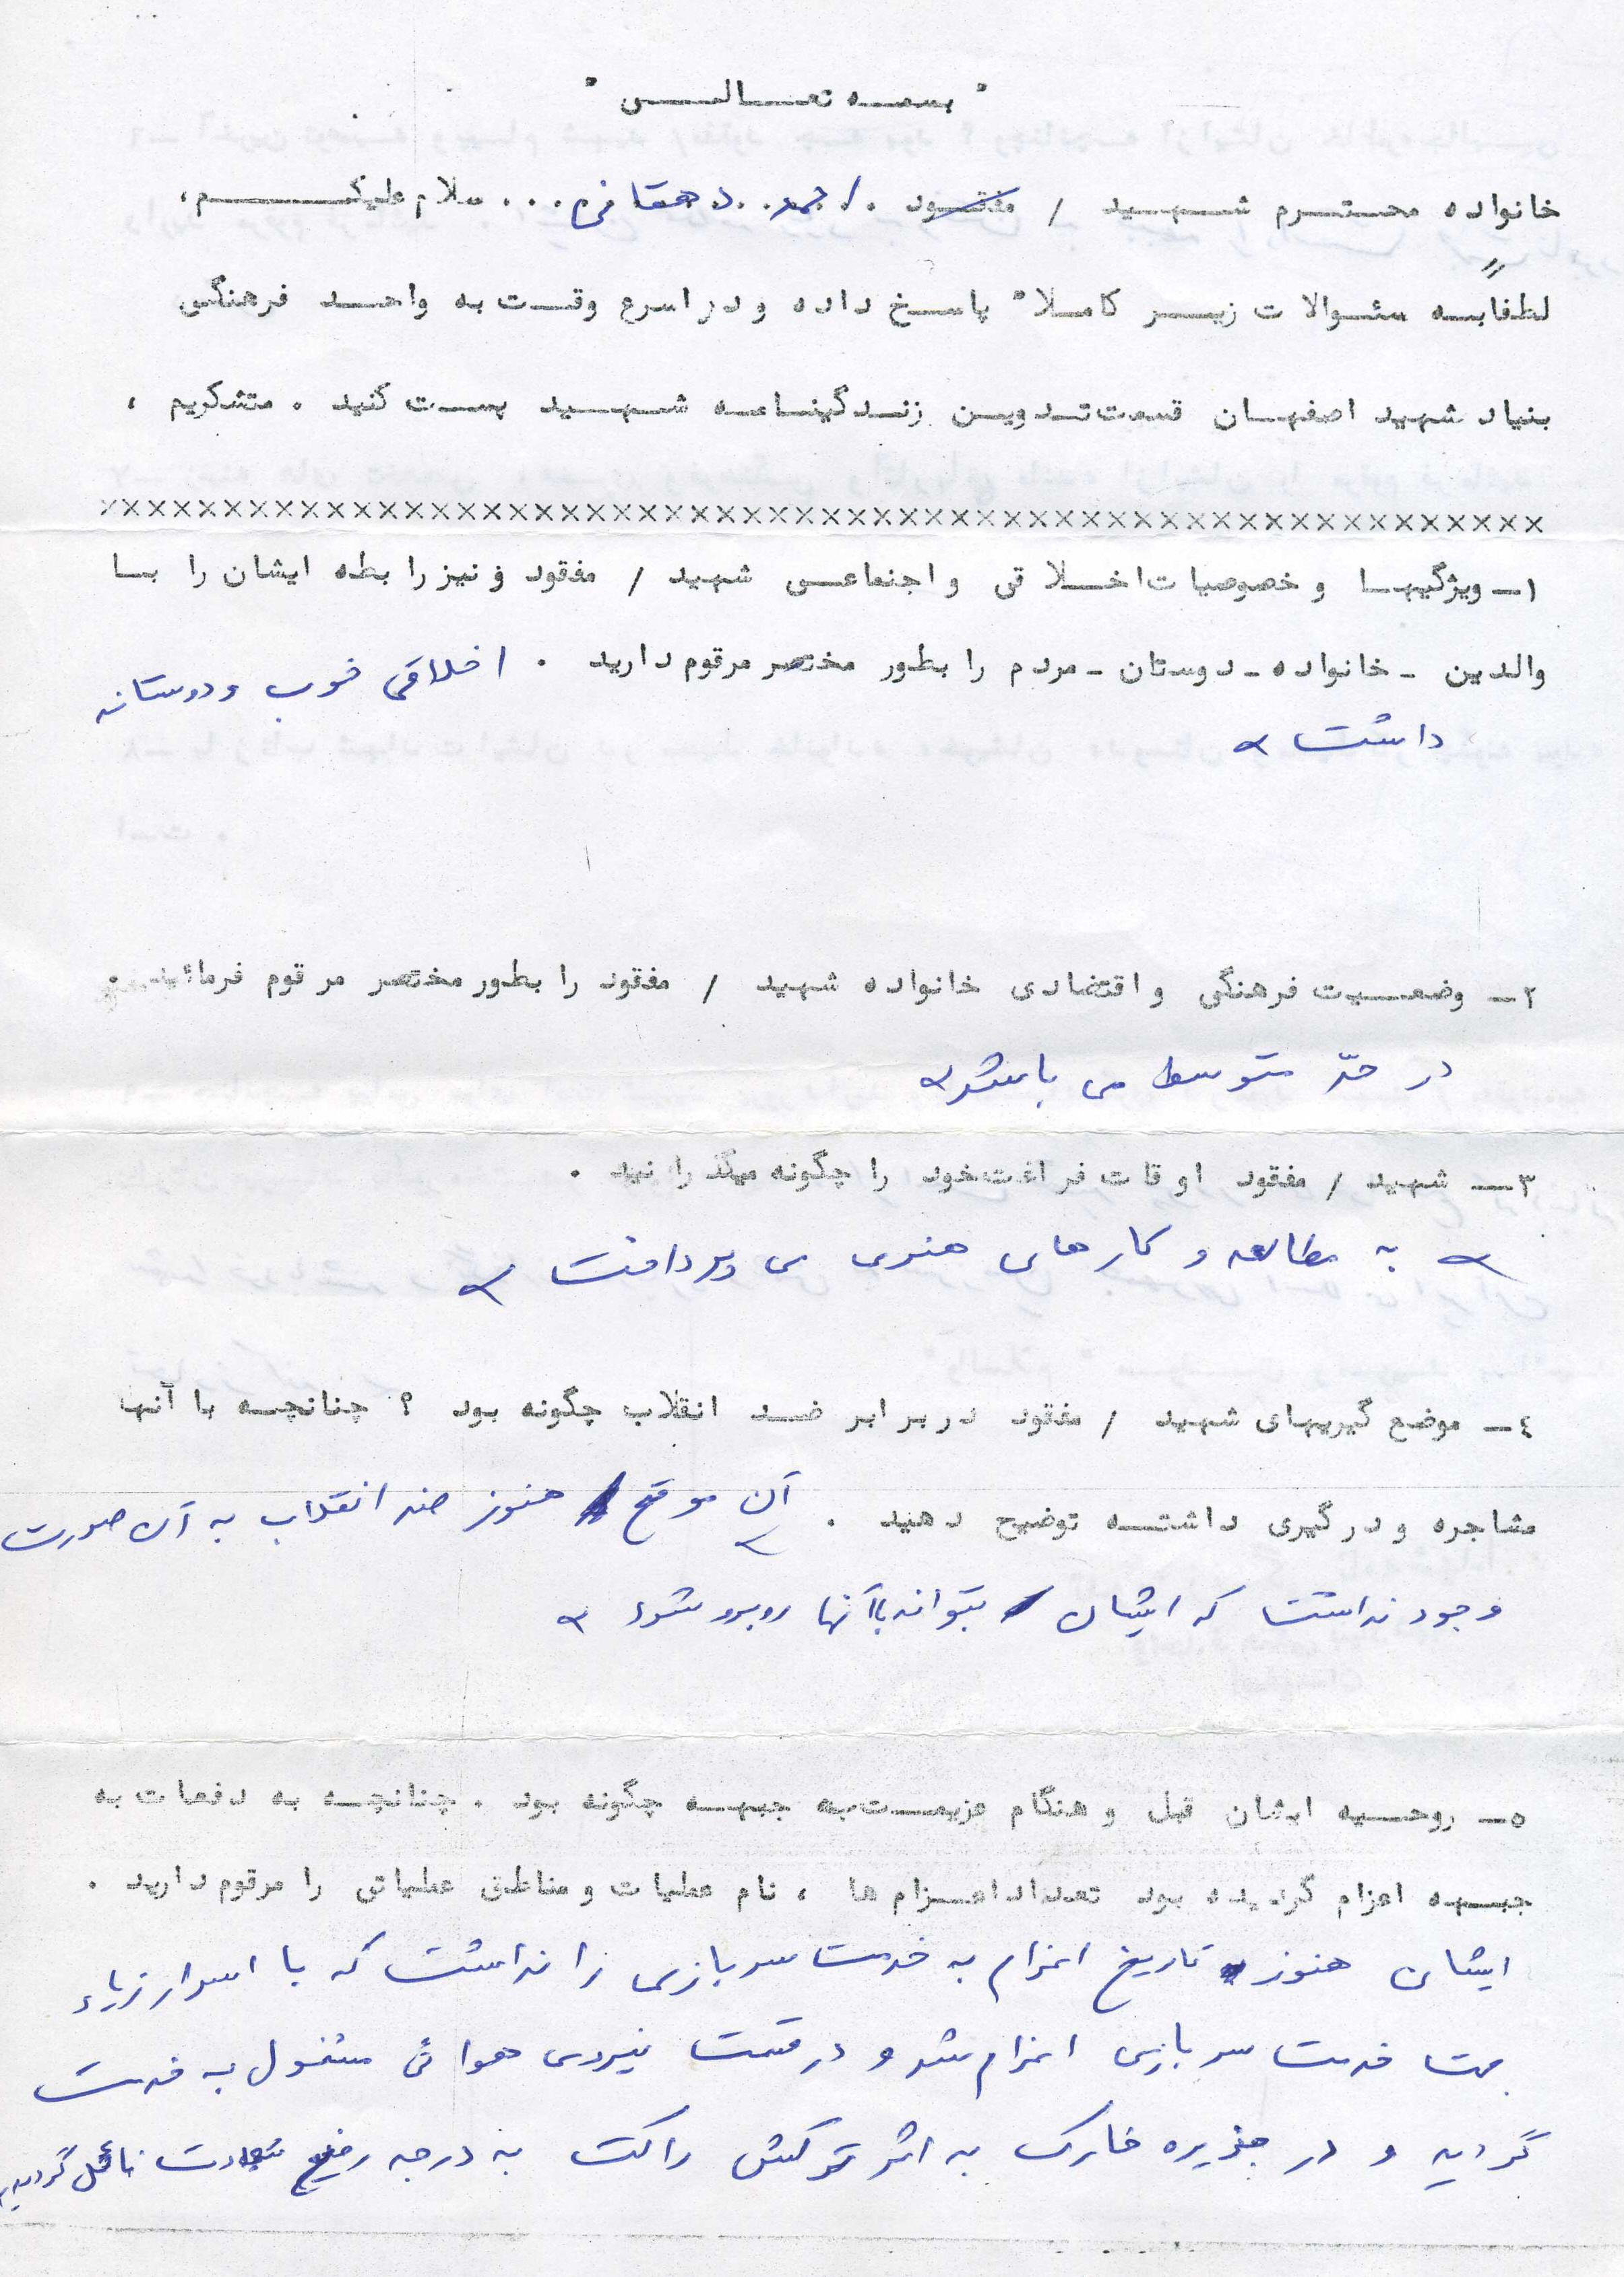 " بسمه تعالی "
خانواده محترم شهید / مفقود . احمد . . دهقانی . . . سلام علیکم ،
لطفاً به سئوالات زیر کاملا" پاسخ داده و در اسرع وقت به واحد فرهنگی
بنیاد شهید اصفهان قسمت تدوین زندگینامه شهید پست کنید . متشکریم ،
××××××××××××××××××××××××××××××××××××××××××××××××××××××××
۱- ویژگیها و خصوصیات اخلاقی و اجتماعی شهید / مفقود و نیز رابطه ایشان را با
والدین - خانواده - دوستان - مردم را بطور مختصر مرقوم دارید . اخلاقی خوب و دوستانه
داشت
۲- وضعیت فرهنگی و اقتصادی خانواده شهید / مفقود را بطور مختصر مرقوم فرمائید .
در حدّ متوسط می باشد
۳- شهید / مفقود اوقات فراغت خود را چگونه میگذرانید .
به مطالعه و کارهای هنری می پرداخت
٤- موضع گیریهای شهید / مفقود در برابر ضد انقلاب چگونه بود ؟ چنانچه با آنها
مشاجره و درگیری داشته توضیح دهید . آن موقع هنوز ضد انقلاب به آن صورت
وجود نداشت که ایشان بتواند با آنها روبرو شود
۵- روحیه ایشان قبل و هنگام عزیمت به جبهه چگونه بود . چنانچه به دفعات به
جبهه اعزام گردیده بود تعداد اعزام ها ، نام عملیات و مناطق عملیاتی را مرقوم دارید .
ایشان هنوز تاریخ اعزام به خدمت سربازی را نداشت که با اسرار زیاد
جهت خدمت سربازی اعزام شد و در قسمت نیروی هوائی مشغول به خدمت
گردید و در جزیره خارک به اثر ترکش راکت به درجه رفیع شهادت نائل گردید